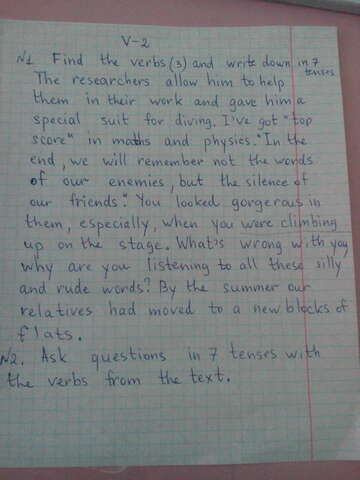 V-2
№1 Find the verbs (3) and write down in 7 tenses
The researchers allow him to help
them in their work and gave him a
special suit for diving. I've got "top
score" in maths and physics. "In the
end, we will remember not the words
of our enemies, but the silence of
our friends." You looked gorgerous in
them, especially, when you were climbing
up on the stage. What's wrong with you
why are you listening to all these silly
and rude words? By the summer our
relatives had moved to a new blocks of
flats.
№2. Ask questions in 7 tenses with
the verbs from the text.